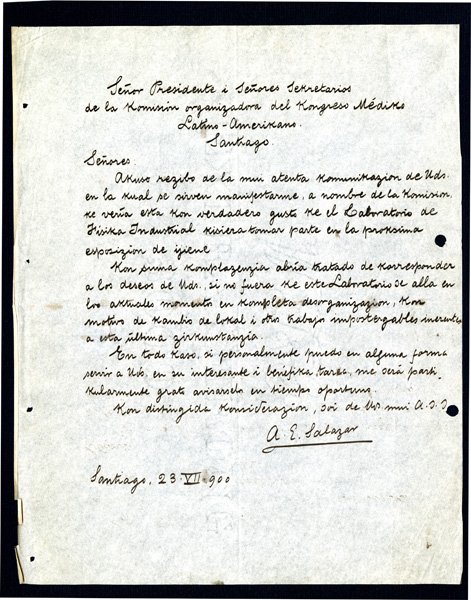 Señor Presidente i Señores Sekretarios
de la Komisión organizadora del Kongreso Médiko
Latino-Amerikano.
Santiago.
Señores
Akuso rezibo de la mui atenta komunikazion de Uds.
en la kual se sirven manifestarme, a nombre de la Komision,
ke vería esta kon verdadero gusto ke el Laboratorio de
Físika Industrial kisiera tomar parte en la próksima
esposizion de ijiene.
Kon suma komplazenzia abría tratado de korresponder
a los deseos de Uds., si no fuera ke este Laboratorio se alla en
los aktuales momento en kompleta desorganizazion, kon
motivo de kambio de lokal i otros trabajo impostergables inerentes
a esta última zirkunstanzia.
En todo kaso, si personalmente puedo en alguna forma
servir a Uds. en su interesante i benéfika tarea, me será parti-
kularmente grato avisarselo en tiempo oportuno.
Kon distinguida konsiderazion, soi de Uds. mui A. S. S.
A. E. Salazar
Santiago, 23·VII·900